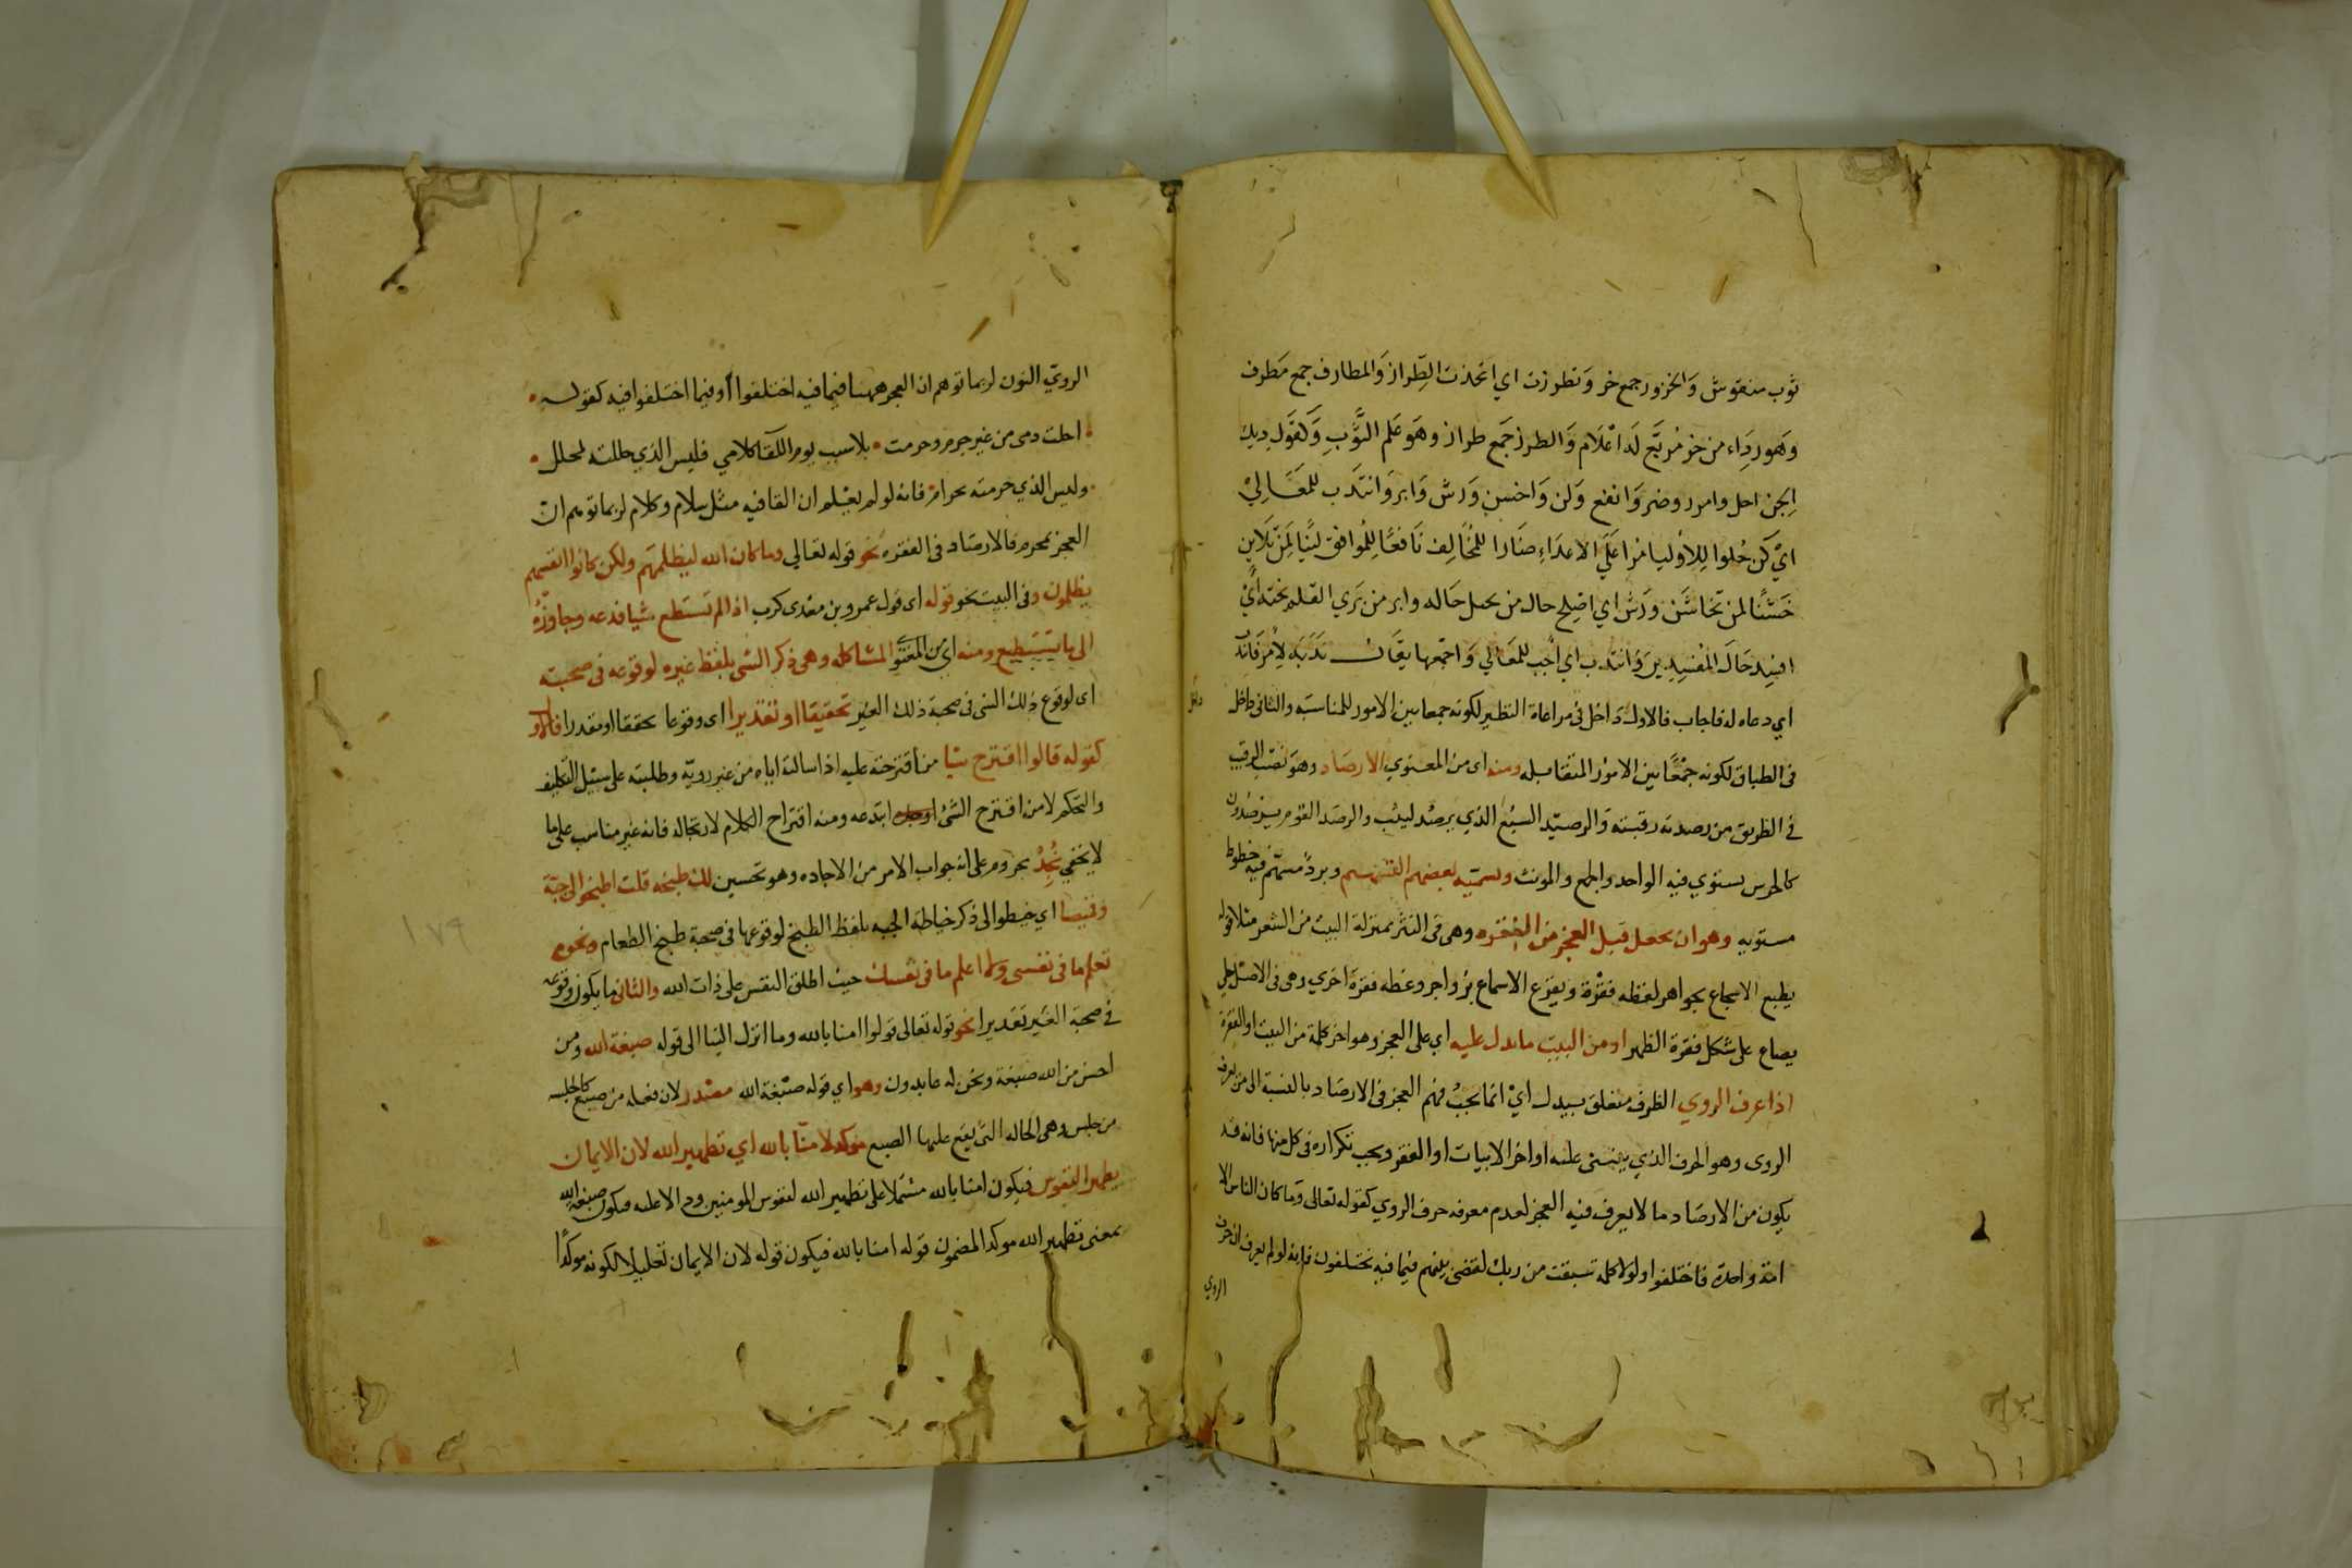 ثوب منقوش وَالخزور جمع خر وَتطرزت اي اتخذت الطِّراز وَالمطارف جمع مَطرف
وَهو رِدَاء من خز مُربَّع لَه اعْلَام وَالطرز جَمع طراز وهوَ عَلم الثَّوبِ وَكقَول ديك
الجن احل وامرر وضر وَانفع وَلن وَاخشن وَرش وَابر وَانتدَب للمعَالِيْ
ايْ كن حُلوا لِلاوْليا مرا عَلَى الاعدَاءِ ضَارا للمُخَالِف نَافعًا لِلمُوافق لينًا لمَن تلاين
خَشْنًا لمن تخاشَن وَرَش اي اصْلِح حال من يحمل حَاله وابر من بَري القَلم نحته ايْ
افسِد حَالَ المفسِدِينَ وَانتدَب اي اجب للمعَالي وَاجمعها يقَال نَدَبَه لِاَمْر فَانتدَبَ
اي دعاه له فاجاب فالاول دَاخل في مراعاة النظير لكونه جمعا بين الامور للمناسبَه والثانى داخل
فى الطباق لكونه جمْعًا بين الامُور المتقابله ومنه اى من المعنوي الارصَاد وهوَ نصب الرقيب
في الطريق من رصدته رقبته وَالرصيد السبُع الذي يرصُد ليثب والرصَد القوم يرصُدون
كالحرس يستوي فيه الواحد والجمع والمونث وسمّيه بعضهم التسهيم وبردٌ مسَهّم فيه خطوط
مستويه وهو ان يجعل قبل العجز من الفقره وهى فى النثر بمنزلة البيت من الشعر مثلا قوله
يطبع الاسجاع بجواهر لفظه فقرة ويقرع الاسماع بزواجر وعظه فقرة اخري وهى فى الاصْل حلي
يصاغ على شكل فقرة الظهر او من البيت مايدل عليه اي على العجز وهو اخر كلمة من البيت او الفقرة
اذا عرف الروي الظرف متعلق بيدل ايْ انما يجبُ فهم العجز فى الارصَاد بالنسبة الى من يعرف
الروى وهو الحرف الذي يبتنى عليه اواخر الابيات او الفقر ويجب تكراره فى كل منها فانه قد
يكون من الارصَاد ما لا يعرف فيه العجز لعدم معرفه حرف الروي كقوله تعالى وَما كان الناس الا
امة واحدة فاختلفوا ولولا كلمه سبقت من ربك لقضى بينهم فيما فيه يختلفون فانه لو لم يعرف ان حرف
الروي
الرويّ النون لربما توهم ان العجز ههنا فيما فيه اختلفوا أو فيما اختلفوا فيه كقوله
احلت دمى من غير جرم وحرمت بلا سبب يوم اللقا كلامي فليس الذي حللته بمحلل
وليس الذي حرمته بحرام فانه لو لم يعْلم ان القافيه مثل سلام وكلام لربما توهم انّ
العجز بمحرم فالارصَاد فى الفقره نحو قوله تعالي وما كان الله ليظلمهم ولكن كانوا انفسهم
يظلمون وفى البيت نحو قوله اى قول عمرو بن معدى كرب اذا لم تستطع شيا فدعه وجاوزْهُ
الى ما تستطيع ومنه اي من المعنوي المشاكله وهى ذكر الشى بلفظ غيره لوقوعه فى صحبته
اى لوقوع ذلك الشى فى صحبة ذلك الغير تحقيقا او تقديرا اى وقوعا محققا او مقدرا فالاول
كقوله قالوا اقترح شيا من اقترحته عليه اذا سالتة اياه من غير رويّه وطلبته على سبيل التكليف
والتحكم لا من اقترح الشئ ابتدعه ومنه اقتراح الكلام لارتجاله فانه غير مناسب على ما
لا يخفي نُجِدْ مجزوم على انه جواب الامر من الاجاده وهو تحسين لك طبخه قلت اطبخوا لى جبّة
وقميصا اي خيطوا لى ذكر خياطة الجبه بلفظ الطبخ لوقوعها فى صحبة طبخ الطعام ونحوه
تعلم ما فى نفسى ولا اعلم ما فى نفسك حيث اطلق النفس على ذات الله والثانى ما يكون وقوعه
فى صحبة الغير تقديرا نحو قوله تعالى قولوا امنا بالله وما انزل الينا الى قوله صبغة الله ومن
احسن من الله صبغة ونحن له عابدون وهو اي قوله صبْغة الله مصْدر لانه فعلة من صبغ كالجلسه
من جلس وهى الحاله التى يقع عليها الصبغ موكد لامنّا بالله اي تطهير الله لان الايمان
يطهر النفوس فيكون امنا بالله مشتملا على تطهير الله لنفوس المومنين ودالا عليه فيكون صبغة الله
بمعنى تطهير الله موكدا لمضمون قوله امنا بالله فيكون قوله لان الايمان تعليلا لكونه موكدًا
١٧٩